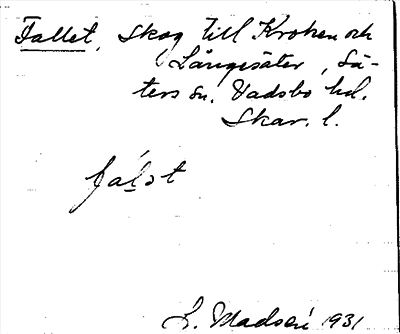 Fallet, Skog till Kroken och
Långesäter, Sä-
ters sn. Vadsbo hd.
Skar. l.
falət
L. Madsén 1931